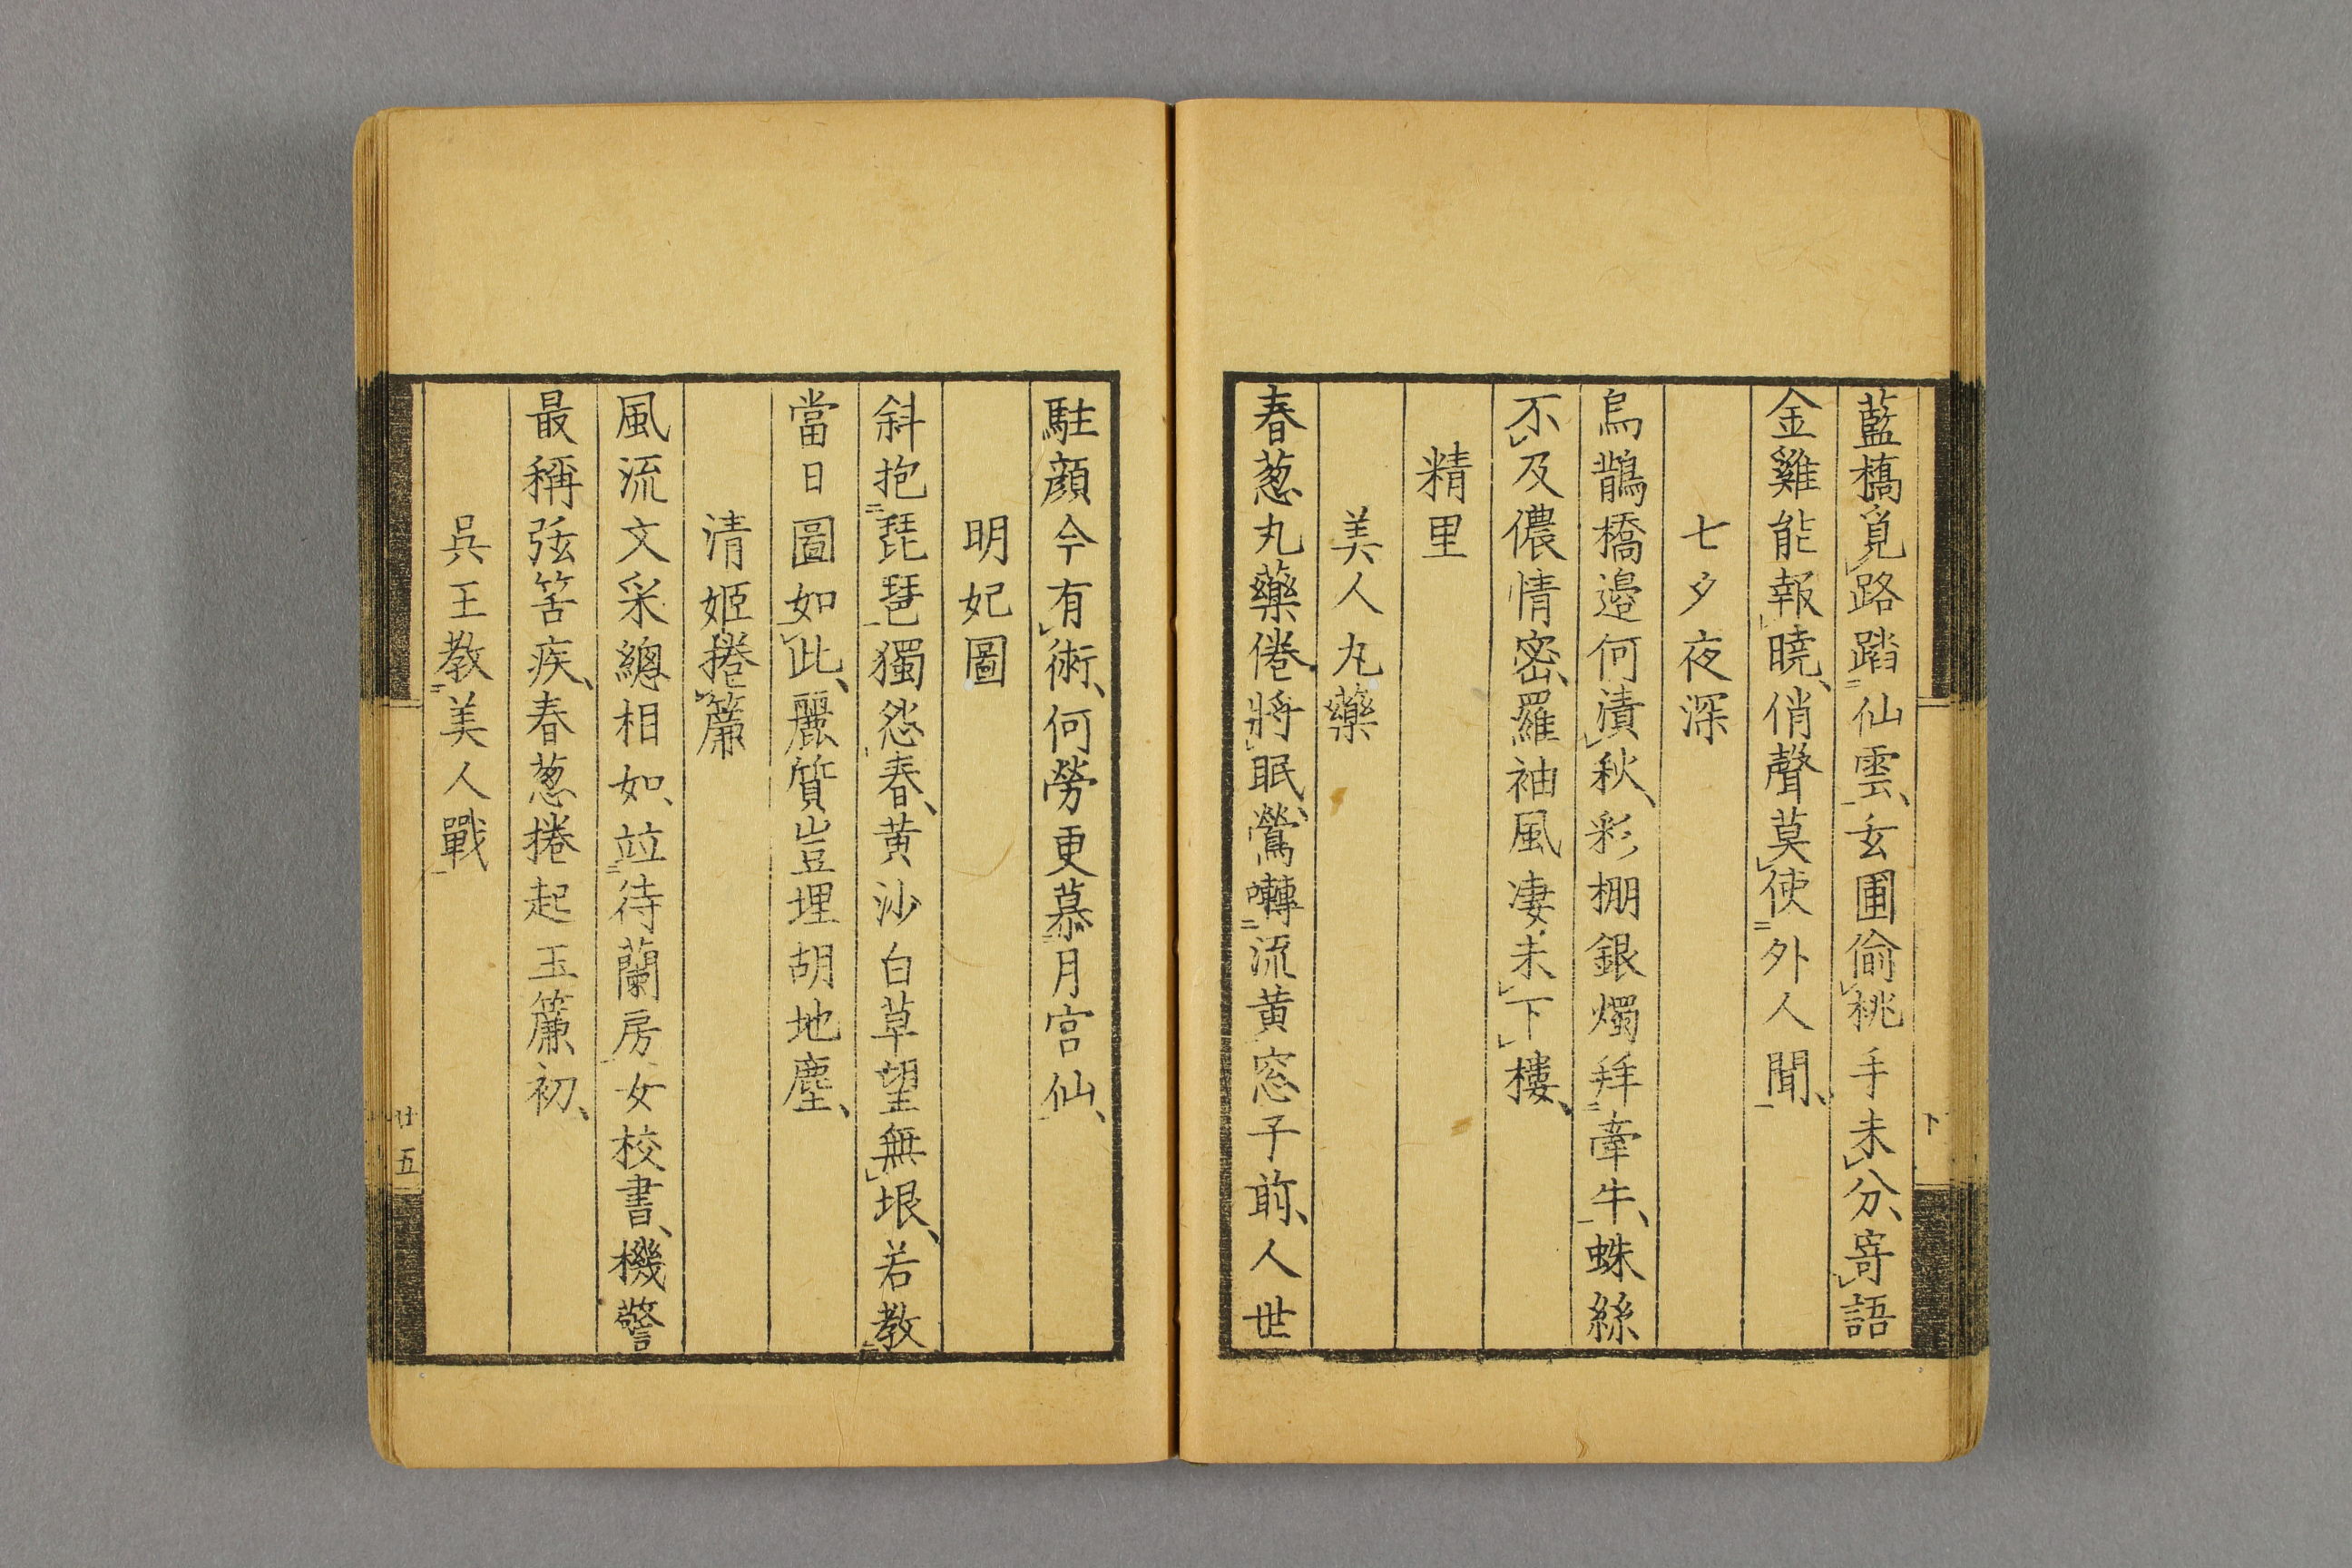 藍橋覓路踏仙雲、玄圃偷桃手未分、寄語
金雞能報曉、俏聲莫使外人聞、
七夕夜深
烏鵲橋邊何漬秋、彩棚銀燭拜牽牛、蛛絲
不及儂情密、羅袖風凄未下樓、
精里
美人丸藥
春葱丸藥倦將眠、鶯囀流黃窓子前、人世
下
駐顔今有術、何勞更慕月宮仙、
明妃圖
斜抱琵琶獨怨春、黃沙白草望無垠、若教
當日圖如此、麗質豈埋胡地塵、
清姬捲簾
風流文采總相如、竝待蘭房女校書、機警
最稱弦筈疾、春葱捲起玉簾初、
吳王教美人戰
廿五